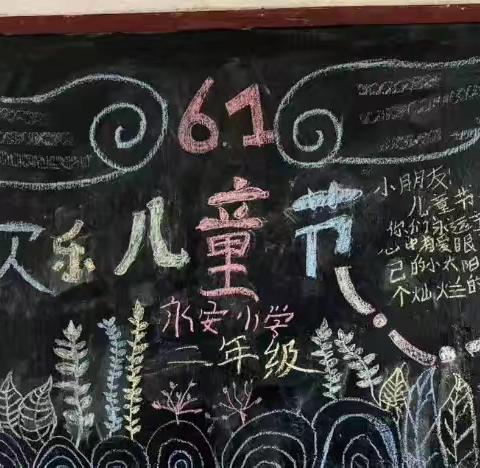 6.1
欢乐儿童节
永安小学
二年级
小朋友:
儿童节
你们永远
心中有爱眼
己的小太阳
个灿烂的